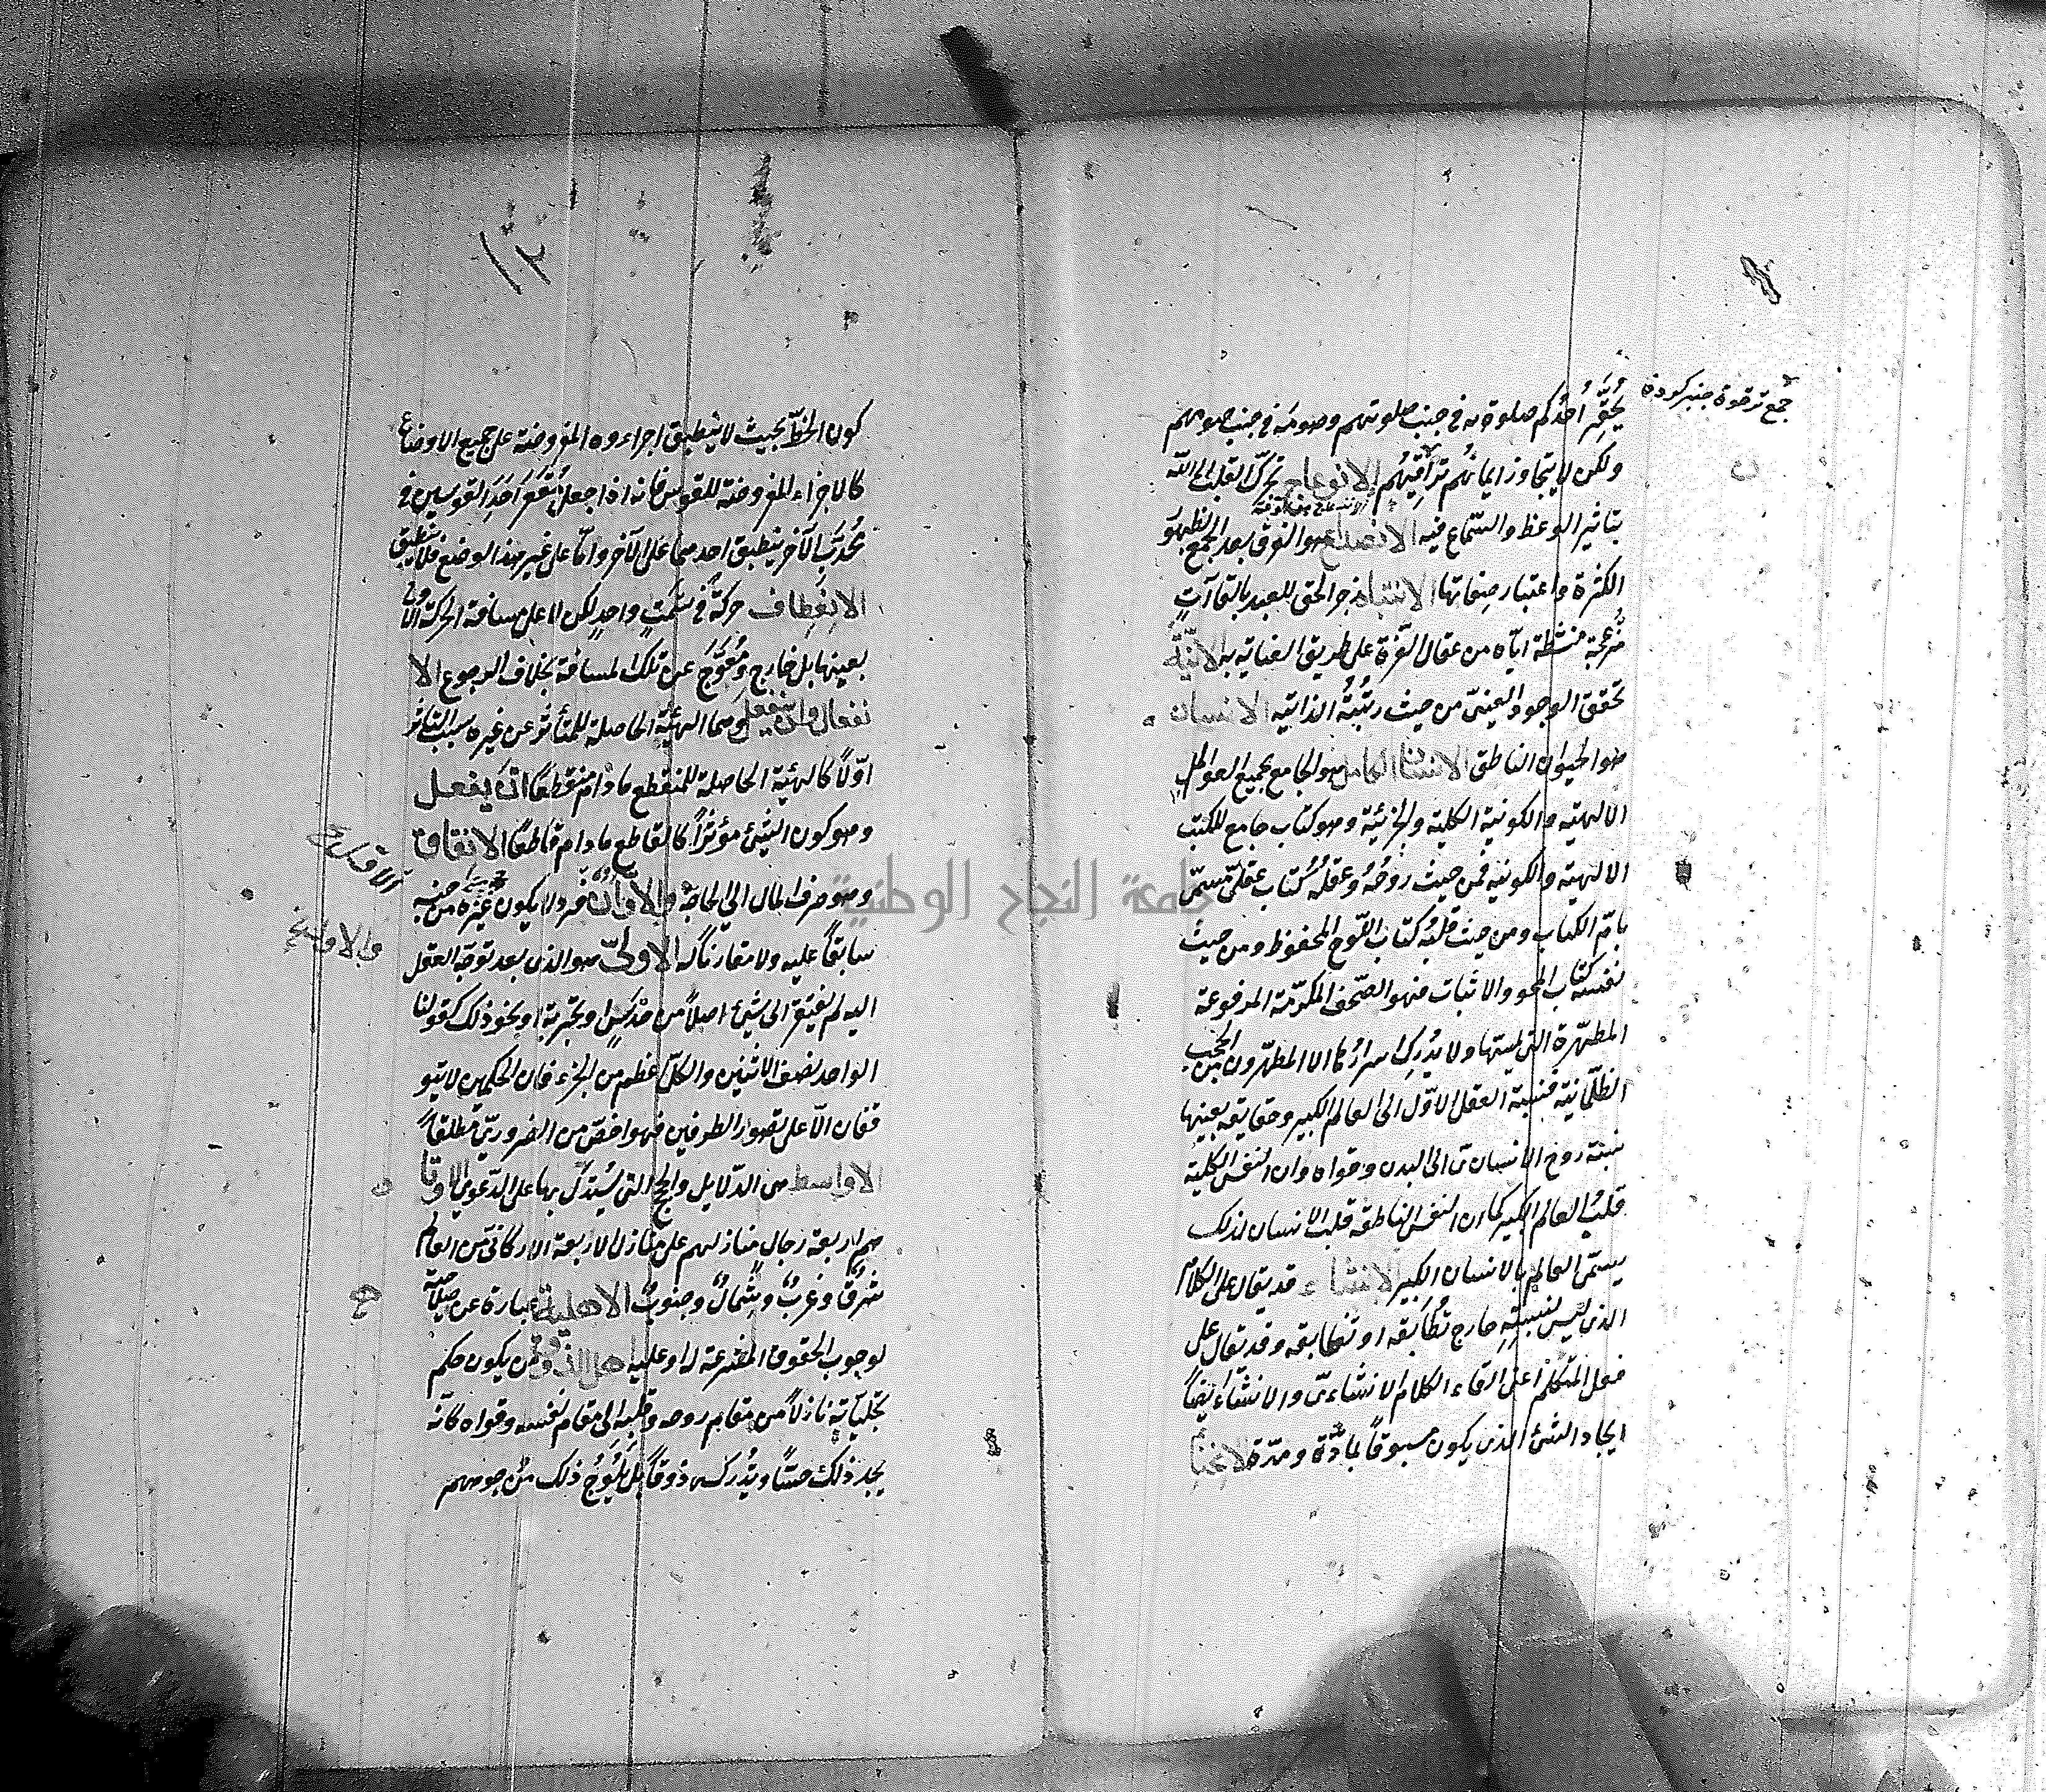 جمع ترقوة جنبر كردن
يُحَقِّرُ أحَدُكم صلوة به في جنب صلوتهم وصومَه في جنب صومهم
ولكن لا يتجاوز ايمانُهم تراقيَهُم الانزعاج تحرّك القلب الى الله
بتاثير الوعظ والسّماع فيه الانصداع هو الفرق بعد الجمع لظهور
الكثرة واعتبار صفاتها الانتباه زجر الحق للعبد بالقاآتٍ
مُزعجة منشّطة ايّاه من عقال الغرّة على طريق العناية به الانّيّة
تحقق الوجود العينيّ من حيث رتبتُه الذاتية الانسان
هو الحيوان الناطق الانسان الكامل هو الجامع لجميع العوالم
الالهية والكونية الكلية والجزئية وهو كتاب جامع للكتب
الالهية والكونية فمن حيث روحُه وعقلُه كتاب عقليّ مسمّى
بامّ الكتاب ومن حيث قلبه كتاب اللوح المحفوظ ومن حيث
نفسه كتاب المحو والاثبات فهو الصّحف المكرّمة المرفوعة
المطهّرة التي لا يمسّها ولا يُدرك اسرارَها الا المطهّرون من الحجب
الظلمانيّة فنسبة العقل الاوّل الى العالم الكبير وحقايقه بعينها
نسبة روح الانساني الى البدن وقواه وان النفس الكلية
قلب العالم الكبير كما ان النفس الناطقة قلب الانسان لذلك
يسمّى العالم بالانسان الكبير الانشاء قد يقال على الكلام
الذي ليس لنسبته خارج تُطابقه او لا تطابقه وقد يقال على
فعل المتكلم اعني القاء الكلام الانشاءيّ والانشاء ايضاً
ايجاد الشئ الذي يكون مسبوقاً بمادّة ومدّة الانحنا
١٢
كون الخطّ بحيث لا ينطبق اجزاءوه المفروضة على جميع الاوضاع
كالاجزاء المفروضة للقوس فانه اذا جعل مُقَعَّر أحَدِ القوسين في
مُحدَّب الآخر ينطبق احدهما على الآخر وامّا على غير هذا الوضع فلا ينطبق
الانعطاف حركةٌ في سَمتٍ واحدٍ لكن لا على مسافة الحركة الاولى
بعينها بل خارج ومُعوَجٌّ عن تلك المسافة بخلاف الرجوع الا
نفعال وان ينفعل وهما الهيئة الحاصلة للمتأثر عن غيره بسبب التاثر
اوّلاً كالهيئة الحاصلة للمنقطع ما دام منقطعًا ان يفعل
وهو كون الشئ مؤثراً كالقاطع ما دام قاطعًا الانفاق
وهو صرف المال الى الحاجة والاوّل فرد لا يكون غيره من جنسه
سابقًا عليه ولا مقارنًا له الاوليّ هو الذي بعد توجّه العقل
اليه لم يفتقر الى شئ اصلاً من حَدْسٍ او تجربة او نحو ذلك كقولنا
الواحد نصف الاثنين والكلّ اعظم من الجزء فان الحكمين لا يتو
قفان الّا على تصور الطرفين فهو اخصّ من الضروريّ مطلقاً
الاواسط هي الدّلايل والحجج التي يُستدلّ بها على الدّعوى الاوتا
هم اربعة رجال منازلهم على منازل الاربعة الاركان من العالم
شرقٌ وغربٌ وشمالٌ وجنوبٌ الاهلية عبارة عن صلاحية
لوجوب الحقوق المشرعة له او عليه اهل الذوق من يكون حكم
تجلّياته نازلاً من مقام روحه وقلبه الى مقام نفسه وقواه كانّه
يجد ذلك حسّاً ويُدركه ذوقاً بل يلوح ذلك من وجوههم